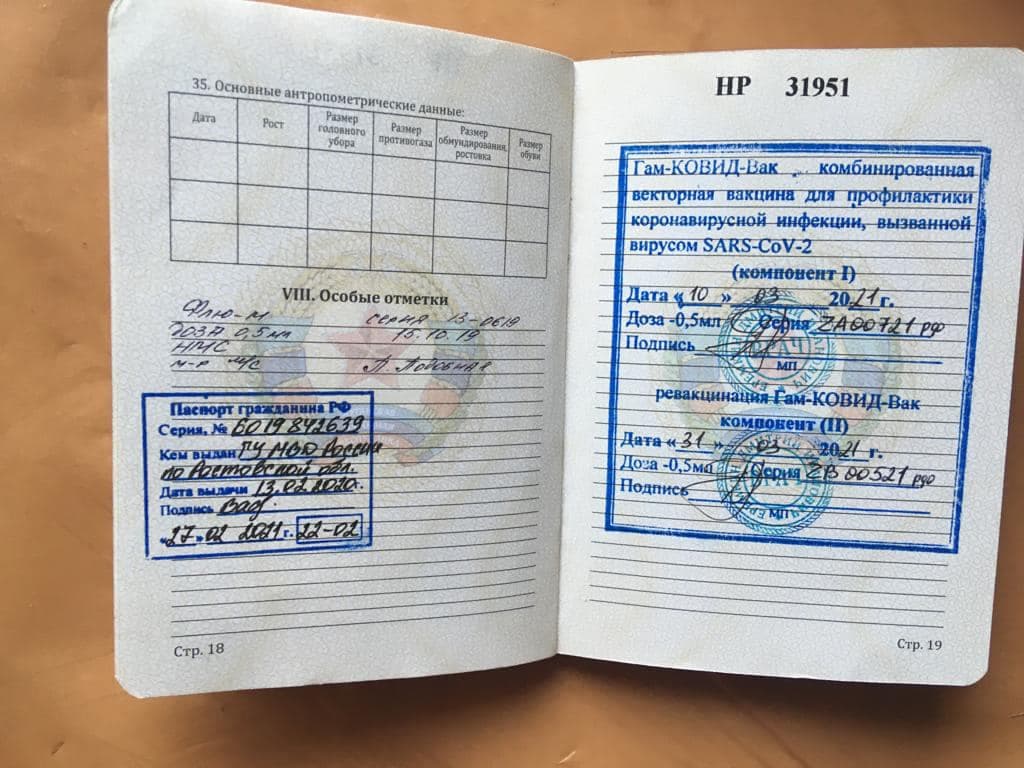 35. Основные антропометрические данные:
Дата Рост Размер головного убора Размер противогаза Размер обмундирования, ростовка Размер обуви
VIII. Особые отметки
Флю-М серия 13-0619
ДОЗА 0,5мл 15.10.19
НМС
м-р м/с
Паспорт гражданина РФ
Серия, № 6019842639
Кем выдан ГУ МВД России
по Ростовской обл.
Дата выдачи 13.02.2020г.
Подпись
«27» 02 2021 г. 22-02
Стр. 18
НР 31951
Гам-КОВИД-Вак комбинированная
векторная вакцина для профилактики
коронавирусной инфекции, вызванной
вирусом SARS-CoV-2
(компонент I)
Дата «10 » 03 2021 г.
Доза -0,5мл Серия ZA00721 рдо
Подпись
МП
ревакцинация Гам-КОВИД-Вак
компонент (II)
Дата «31 » 03 2021 г.
Доза -0,5мл Серия ZB00521 рдо
Подпись
МП
Стр. 19